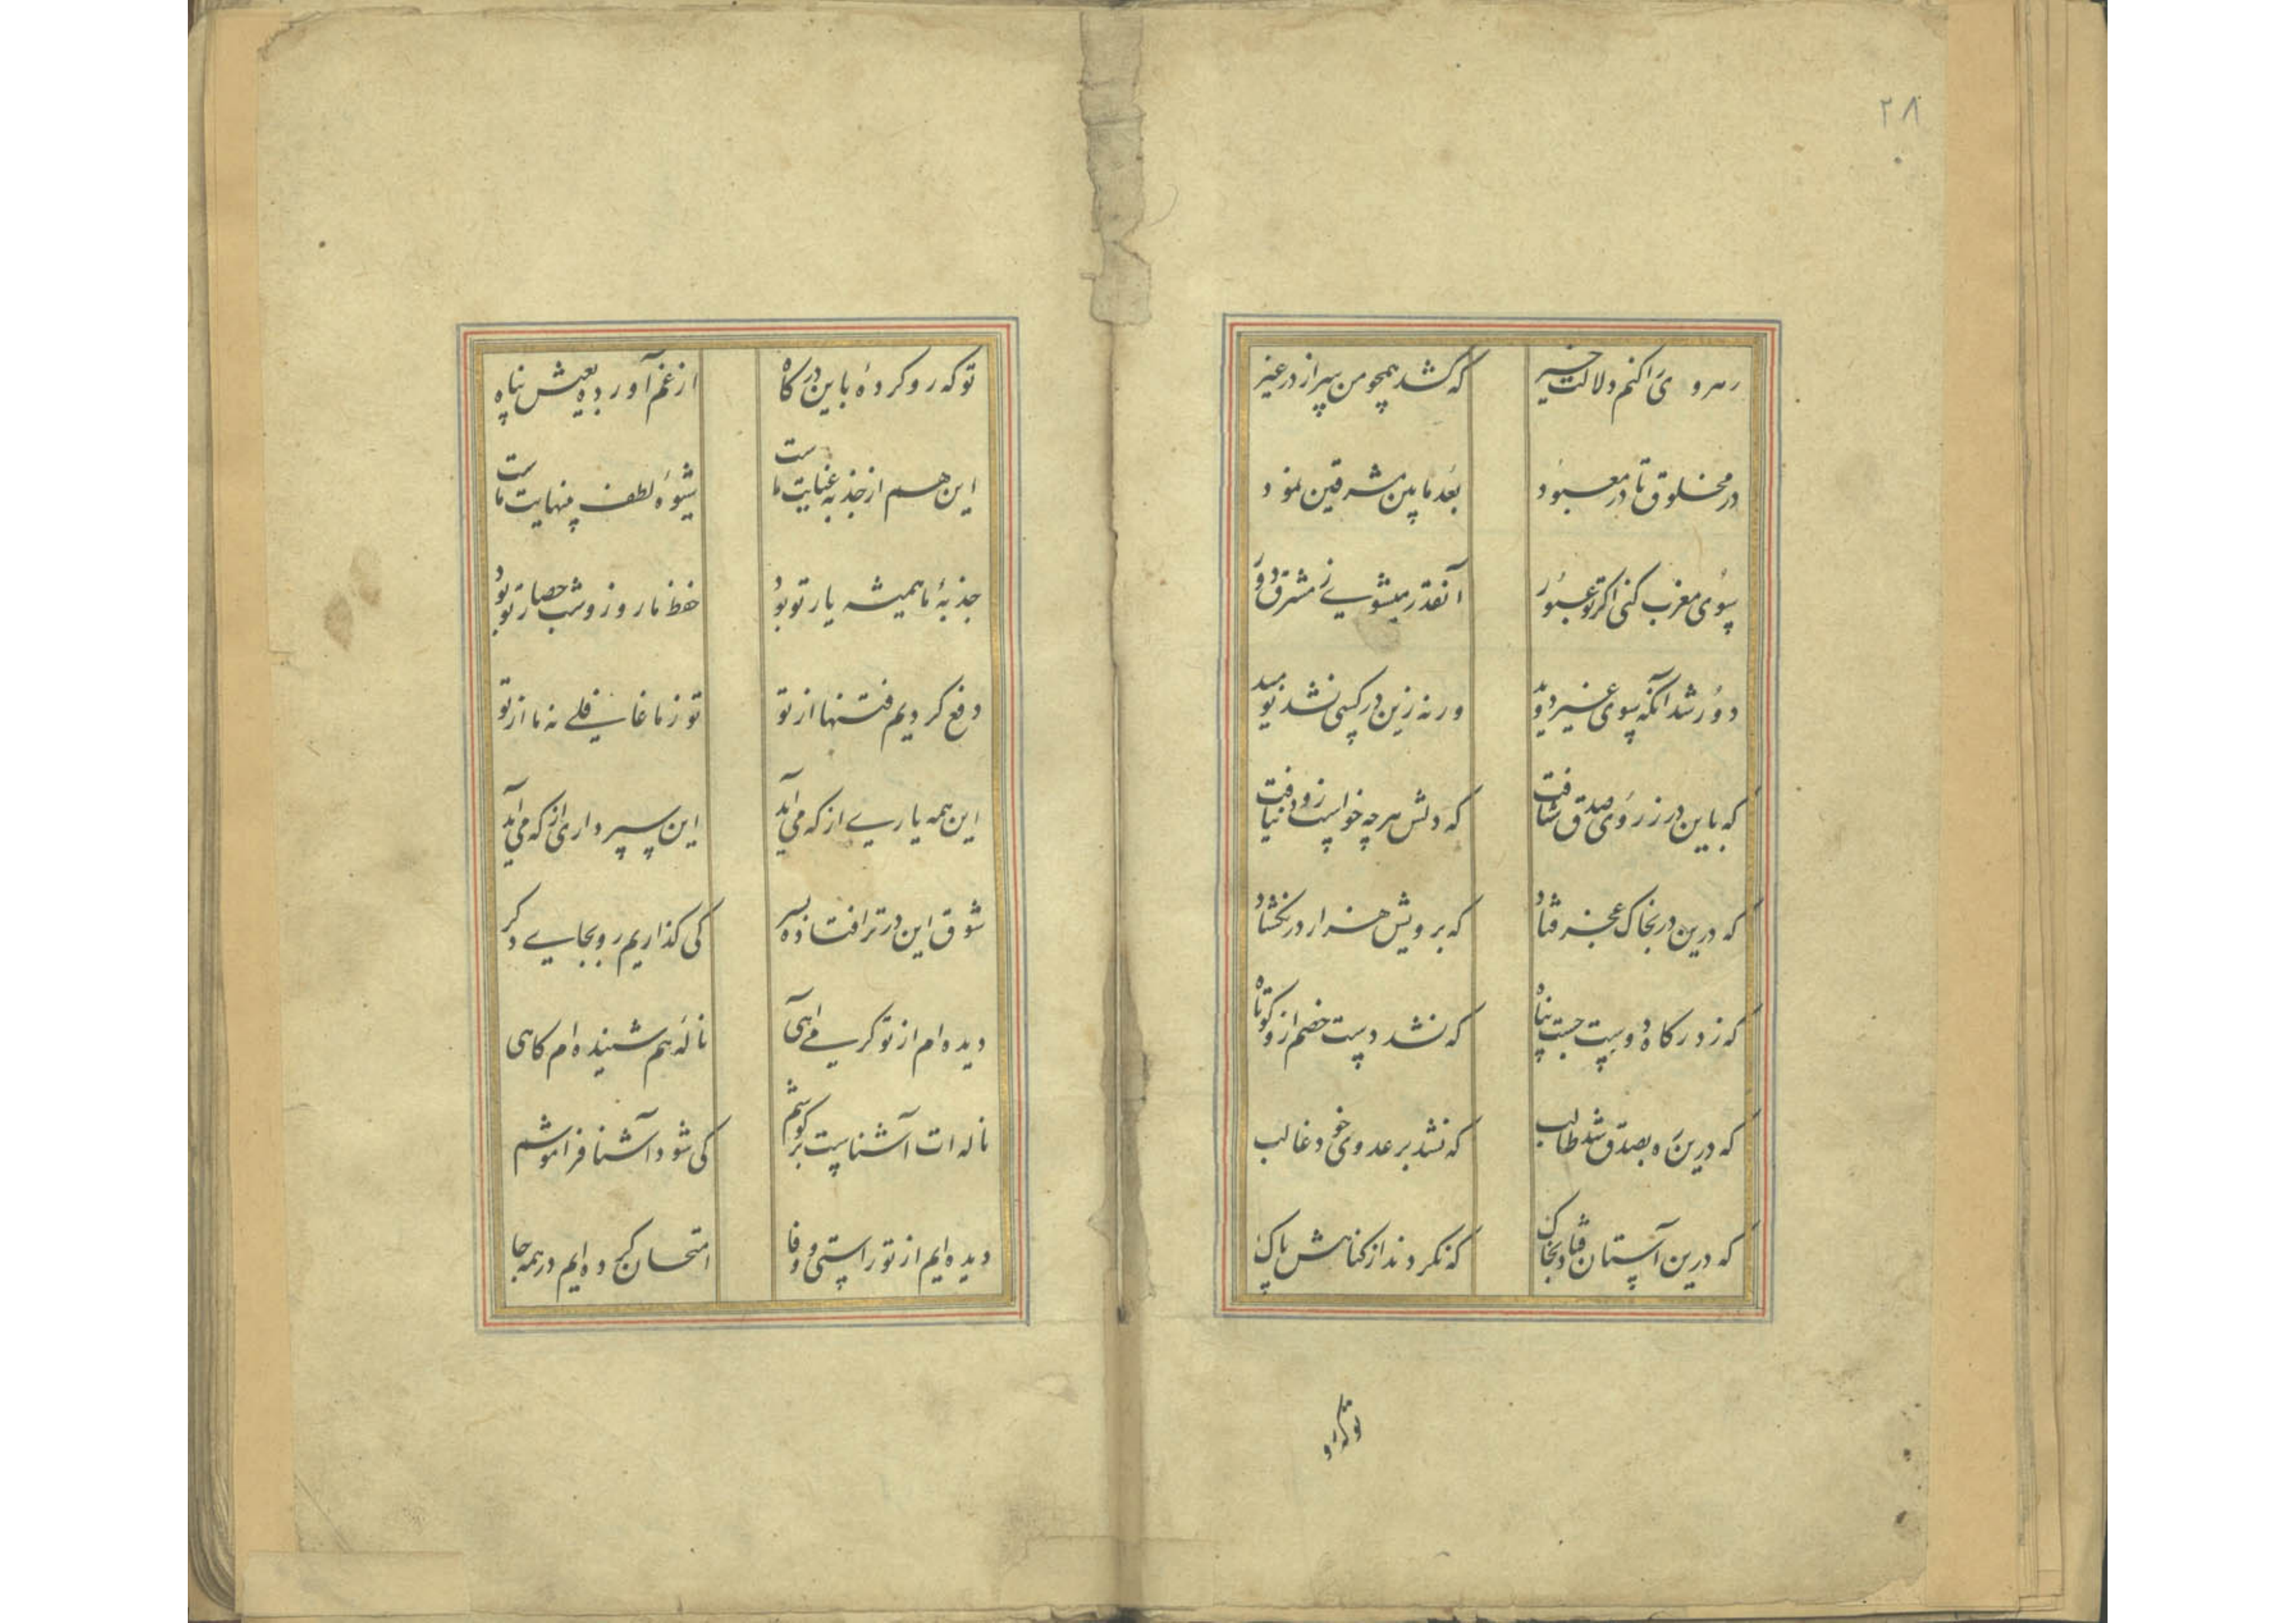 ۲۸
رهروی را کنم دلالت خیر که کشد همچو من سر از در غیر
در مخلوق تا در معبود بعد ما بین مشرقین نمود
سوی مغرب کنی اکر تو عبور آنقدر میشوی ز مشرق دور
دور شد آنکه سوی غیر دوید ورنه زین در کسی نشد نومید
که باین در ز روی صدق شتافت که دلش هرچه خواست زود نیافت
که درین در بخاک عجز فتاد که برویش هزار در نکشاد
که ز درکاه دوست جست پناه که نشد دست خصم ازو کوتاه
که درین ره بصدق شد طالب که نشد بر عدوی خود غالب
که درین آستان فتاد بخاک که نکردند از کناهش پاک
تو که رو
تو که رو کردهٔ باین درکاه از غم آوردهٔ بعیش پناه
این هم از جذبه عنایت ماست شیوهٔ لطف بینهایت ماست
جذبهٔ ما همیشه یار تو بود حفظ ما روز و شب حصار تو بود
دفع کردیم فتنها از تو تو ز ما غافلی نه ما از تو
این همه یاری از که می آید این سپرداری از که می آید
شوق این در ترا فتاده بسر کی کذاریم رو بجایی دکر
دیده ام از تو کریه آهی نالهٔ هم شنیده ام کاهی
ناله ات آشناست بر کوشم کی شود آشنا فراموشم
دیده ایم از تو راستی و وفا امتحان کرده ایم در همه جا